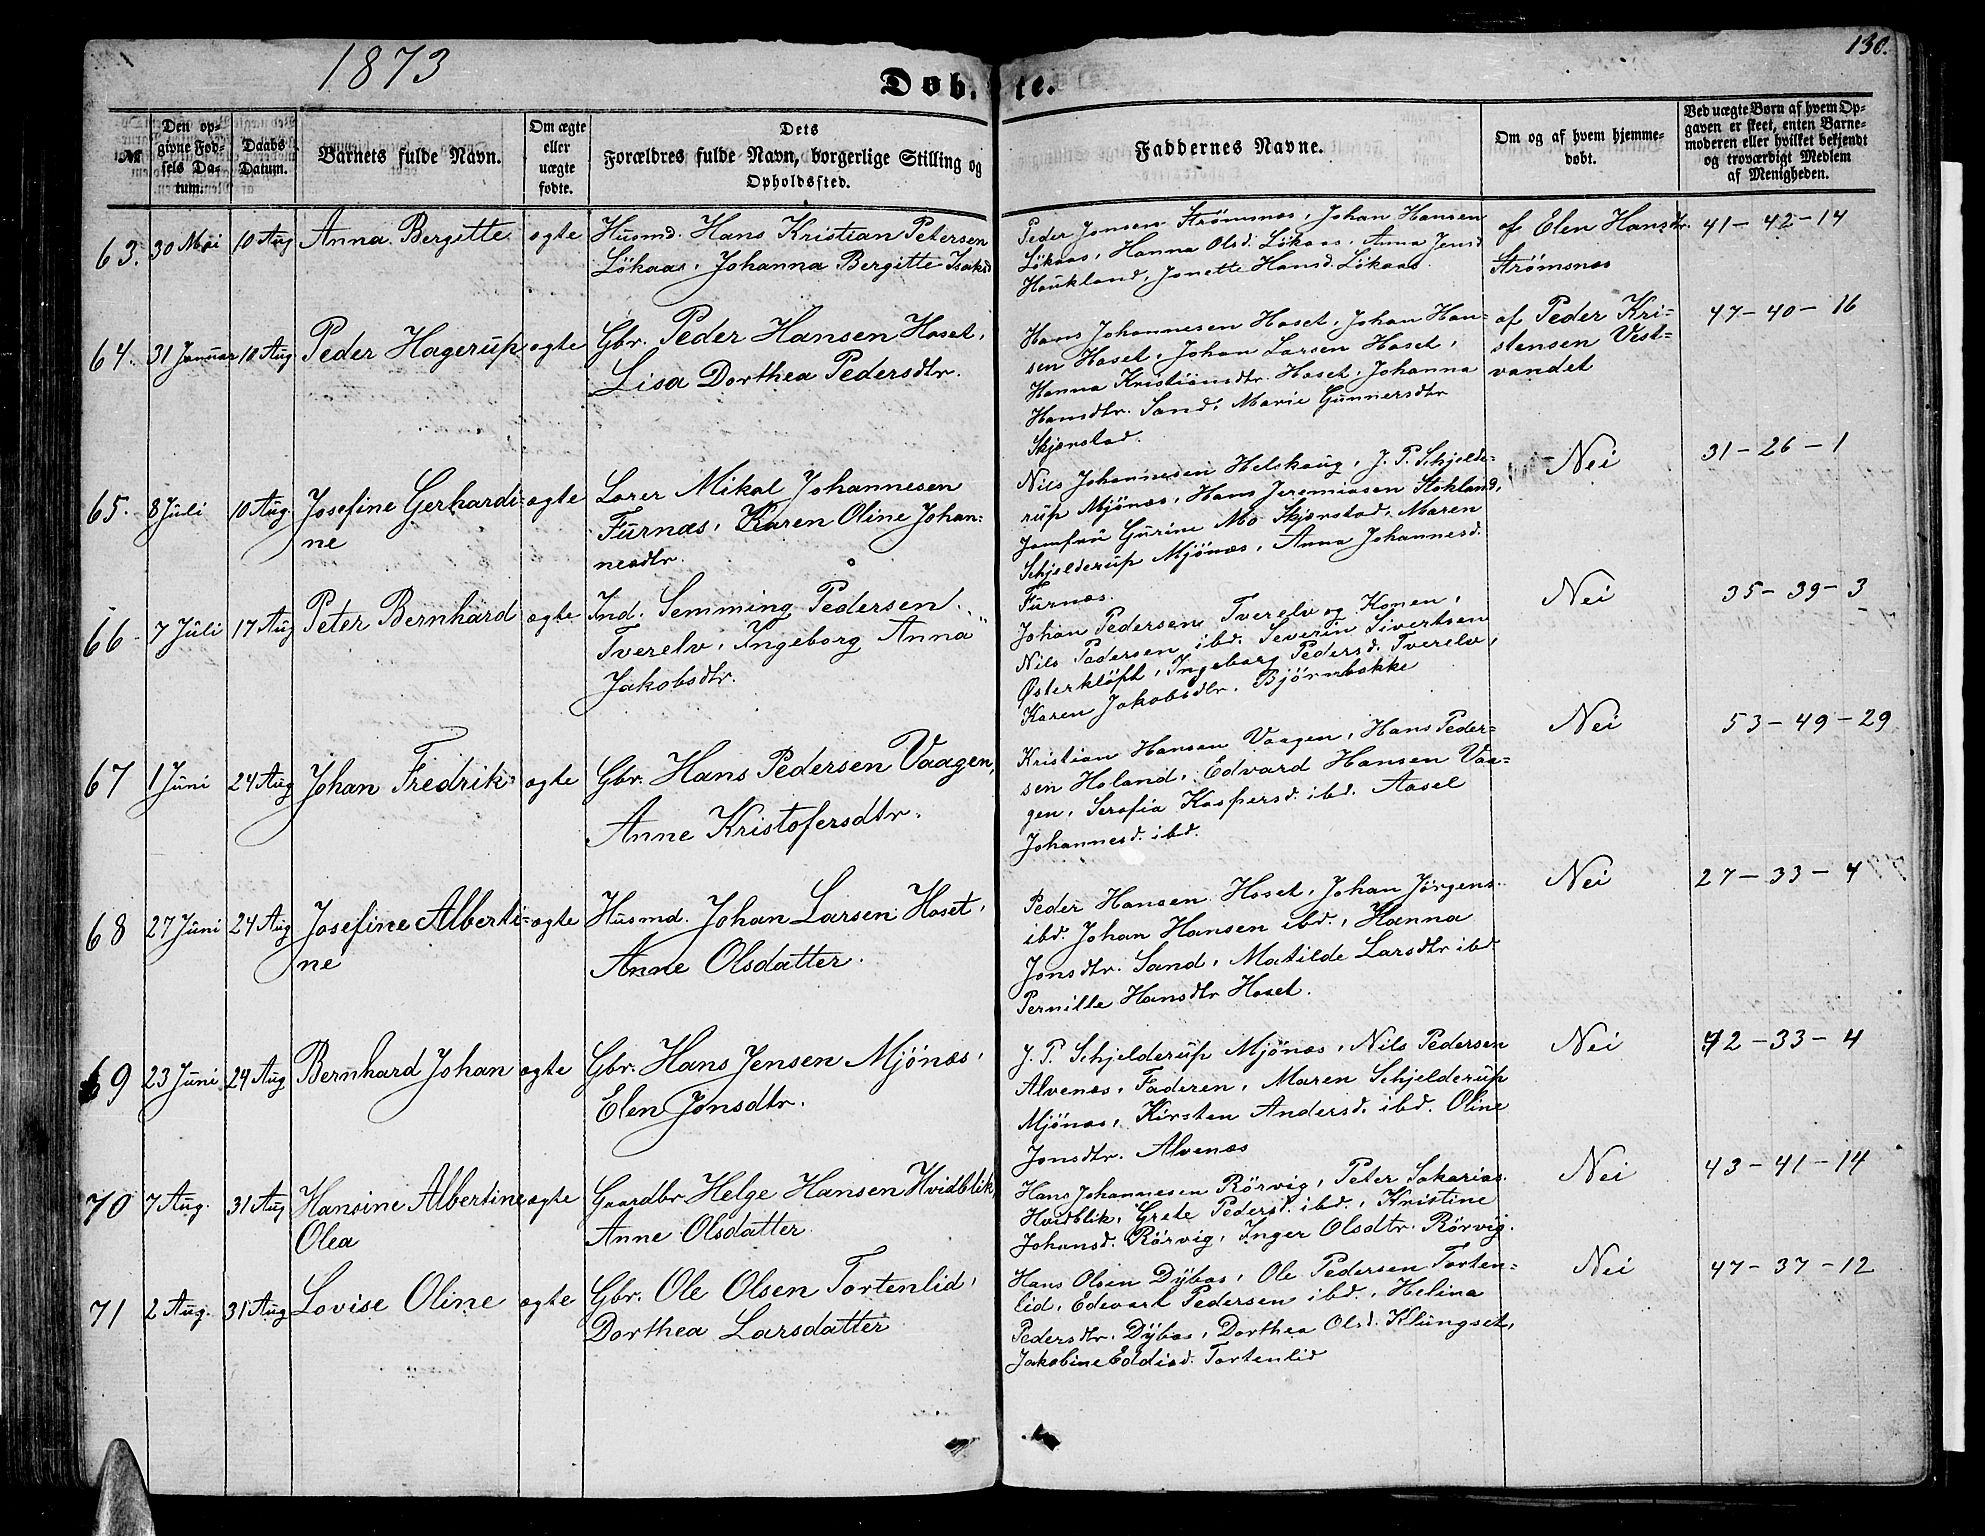 1873
130.
Døb. te.
№
Den op-
givne Fød-
sels Da-
tum.
Daabs
Datum.
Barnets fulde Navn.
Om ægte
eller
uægte
fødte.
Dets
Forældres fulde Navn, borgerlige Stilling og
Opholdssted.
Faddernes Navne.
Om og af hvem hjemme-
døbt.
Ved uægte Børn af hvem Op-
gaven er skeet, enten Barne-
moderen eller hvilket bekjendt
og troværdigt Medlem
af Menigheden.
63. 30 Mai 10 Aug Anna Bergitte ægte
Husmd. Hans Kristian Petersen
Løkaas, Johanna Bergitte Isaksd
Peder Jonsen Strømsnæs, Johan Hansen
Løkaas, Hanna Olsd. Løkaas, Anna Jensd
Haukland, Jonette Hansd. Løkaas
af Elen Hansdtr.
Strømsnæs
41-42-14
64. 31 Januar 10 Aug. Peder Hagerup ægte
Gbr. Peder Hansen Hoset,
Lisa Dorthea Pedersdtr.
Hans Johannesen Hoset, Johan Han-
sen Hoset, Johan Larsen Hoset,
Hanna Kristiansdtr. Hoset, Johanna
Hansdtr. Sand, Marie Gunnersdtr
Skjønstad.
af Peder Kri-
stensen Vest-
vandet
47-40-16
65. 8 Juli 10 Aug. Josefine Gerhardi-
ne
ægte
Lærer Mikal Johannesen
Furnæs, Karen Oline Johan-
nesdtr.
Nils Johannesen Helskaug, J. P. Schjelde-
rup Mjönæs, Hans Jeremiasen Stokland,
Jomfru Gurine Mo Skjønstad, Maren
Schjelderup Mjönæs, Anna Johannesd.
Furnæs.
Nei
31-26-1
66 7 Juli 17 Aug Peter Bernhard ægte
Ind. Semming Pedersen
Tverelv, Ingeborg Anna
Jakobsdtr.
Johan Pedersen Tverelv og Konen,
Nils Pedersen ibd. Severin Sivertsen
Østerkløft, Ingeborg Pedersd. Tverelv,
Karen Jakobsdtr. Björnbakke
Nei
35-39-3
67 1 Juni 24 Aug Johan Fredrik ægte
Gbr. Hans Pedersen Vaagen,
Anne Kristofersdtr.
Kristian Hansen Vaagen, Hans Peder-
sen Holand, Edvard Hansen Vaa-
gen, Serafia Kaspersd. ibd. Aasel
Johannesd. ibd.
Nei
53-49-29
68 27 Juni 24 Aug Josefine Alberti-
ne
ægte
Husmd. Johan Larsen Hoset,
Anne Olsdatter.
Peder Hansen Hoset, Johan Jörgens.
ibd. Johan Hansen ibd., Hanna
Jonsdtr. Sand, Matilde Larsdtr ibd
Pernille Hansdtr Hoset.
Nei
27-33-4
69 23 Juni 24 Aug Bernhard Johan ægte
Gbr. Hans Jensen Mjönæs,
Elen Jonsdtr.
J. P. Schjelderup Mjönæs, Nils Pedersen
Alvenæs, Faderen, Maren Schjelderup
Mjönæs, Kirsten Andersd. ibd. Oline
Jonsdtr. Alvenæs
Nei
42-33-4
70 7 Aug. 31 Aug Hansine Albertine
Olea
ægte
Gaardbr Helge Hansen Hvidblik,
Anne Olsdatter
Hans Johannesen Rörvig, Peter Sakarias.
Hvidblik, Grete Pedersd. ibd., Kristine
Johansd. Rörvig, Inger Olsdtr. Rörvig.
Nei
43-41-14
71 2 Aug. 31 Aug Lovise Oline ægte
Gbr. Ole Olsen Tortenlid,
Dorthea Larsdatter
Hans Olsen Dybos, Ole Pedersen Torten-
lid, Edevart Pedersen ibd., Helina
Pedersdtr. Dybos, Dorthea Olsd. Klungset,
Jakobine Eddisd. Tortenlid
Nei
47-37-12